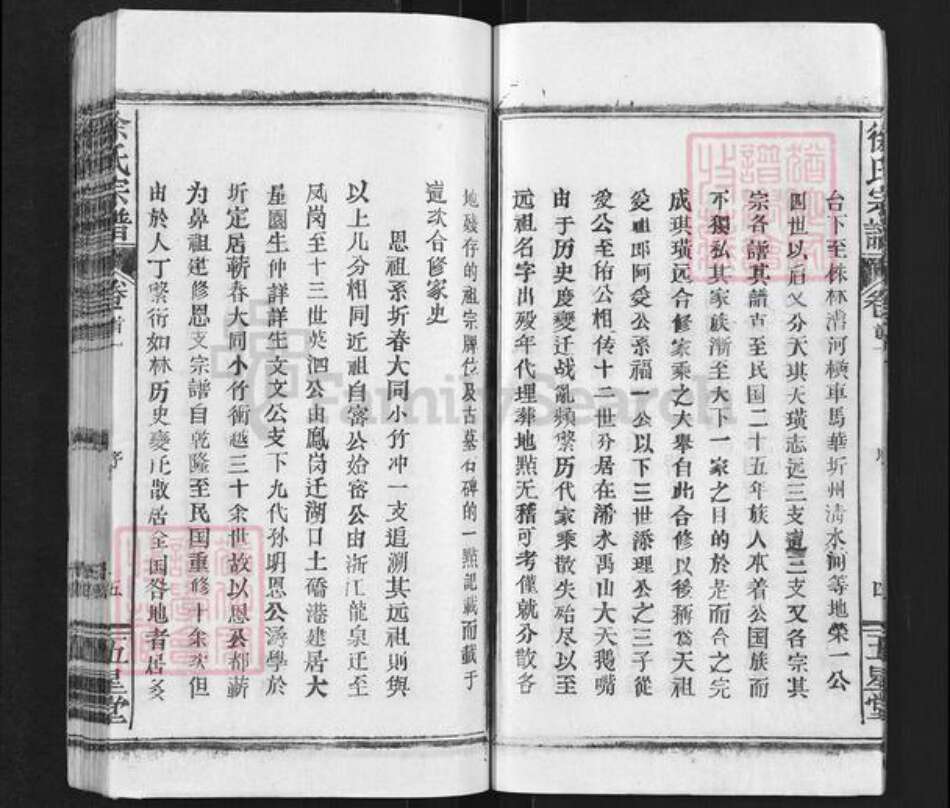 徐氏宗譜
卷首
序
四
五星堂
台下至株林漕河橫車馬華圻州清水涧等地榮一公
四世以后又分天琪天璜志远三支這三支又各宗其
宗各譜其譜古至民國二十五年族人本着公国族而
不獨私其家族渐至大下一家之目的於是而合之完
成琪璜远合修家乘之大舉自此合修以後称爲天祖
爱祖即阿爱公系福一公以下三世添理公之三子從
爱公至佑公相传十二世分居在浠水禹山大天鵝嘴
由于历史度變迁战亂頻繁历代家乘散失殆尽以至
远祖名字出殁年代理葬地點无稽可考僅就分散各
地殘存的祖宗牌位及古墓石碑的一點記載而載于
這次合修家史
恩祖系圻春大同小竹冲一支追溯其远祖則與
以上几分相同近祖自密公始密公由浙江龍泉迁至
凤岗至十三世英泗公由鳳岗迁湖口土礄港建居大
星園生仲詳詳生文文公支下九代孙明恩公游學於
圻定居蕲春大同小竹衝越三十余世故以恩公都蕲
为鼻祖建修恩支宗譜自乾隆至民国重修十余次但
由於人丁繁衍如林历史變迁散居全国各地者居多
徐氏宗譜
卷首
序
五
五星堂
FamilySearch